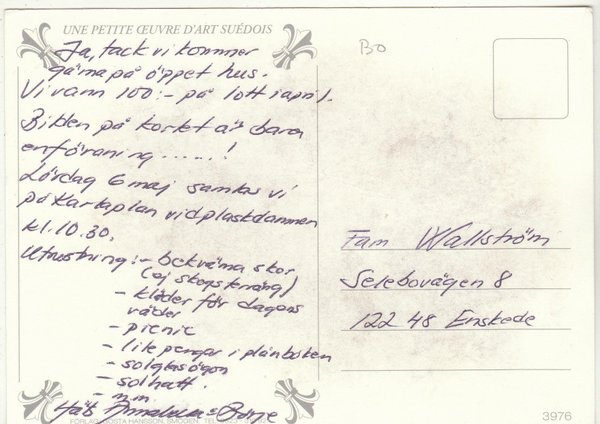 UNE PETITE ŒUVRE D'ART SUÉDOIS
Ja, tack vi kommer
gärna på öppet hus.
Vi vann 100:- på lott i april.
Bilden på kortet är bara
en föraning ......!
Lördag 6 maj samlas vi
på Karlaplan vid plaskdammen
kl. 10.30.
Utrustning: - bekväma skor
(ej skogsterräng)
- kläder för dagens
väder
- picnic
- lite pengar i plånboken
- solglasögon
- solhatt.
- m.m.
FÖRLAG GÖSTA HANSSON, SMÖGEN,
BO
Fam Wallström
Selebovägen 8
122 48 Enskede
3976